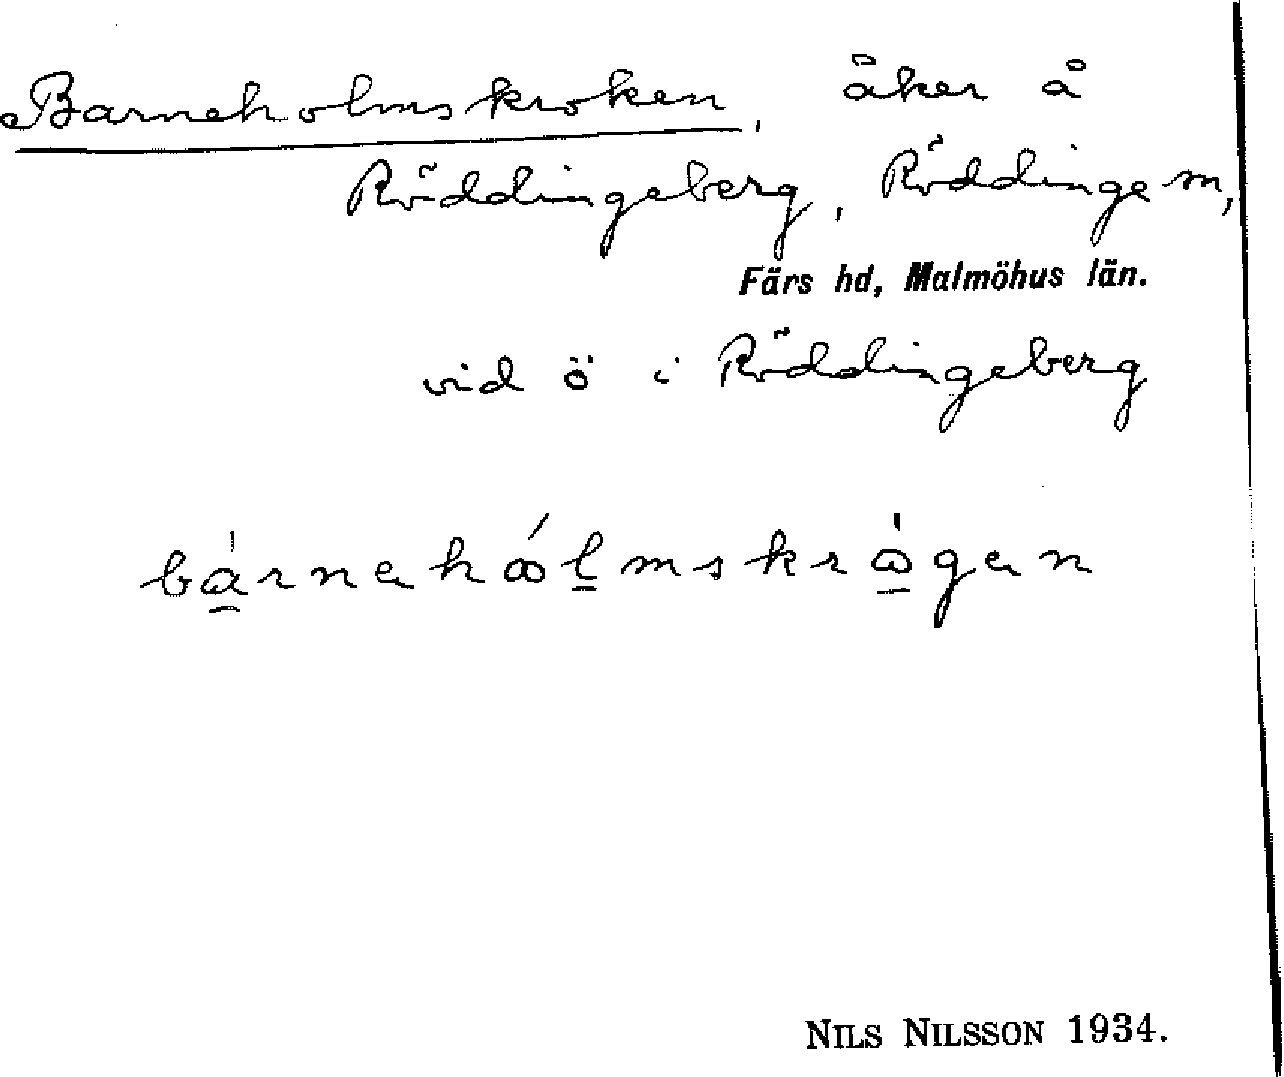 Barneholmskroken, åker å
Röddingeberg, Röddinge sn,
Färs hd, Malmöhus län.
vid ö i Röddingeberg
bá̱rnehålmskrå̱gen
NILS NILSSON 1934.